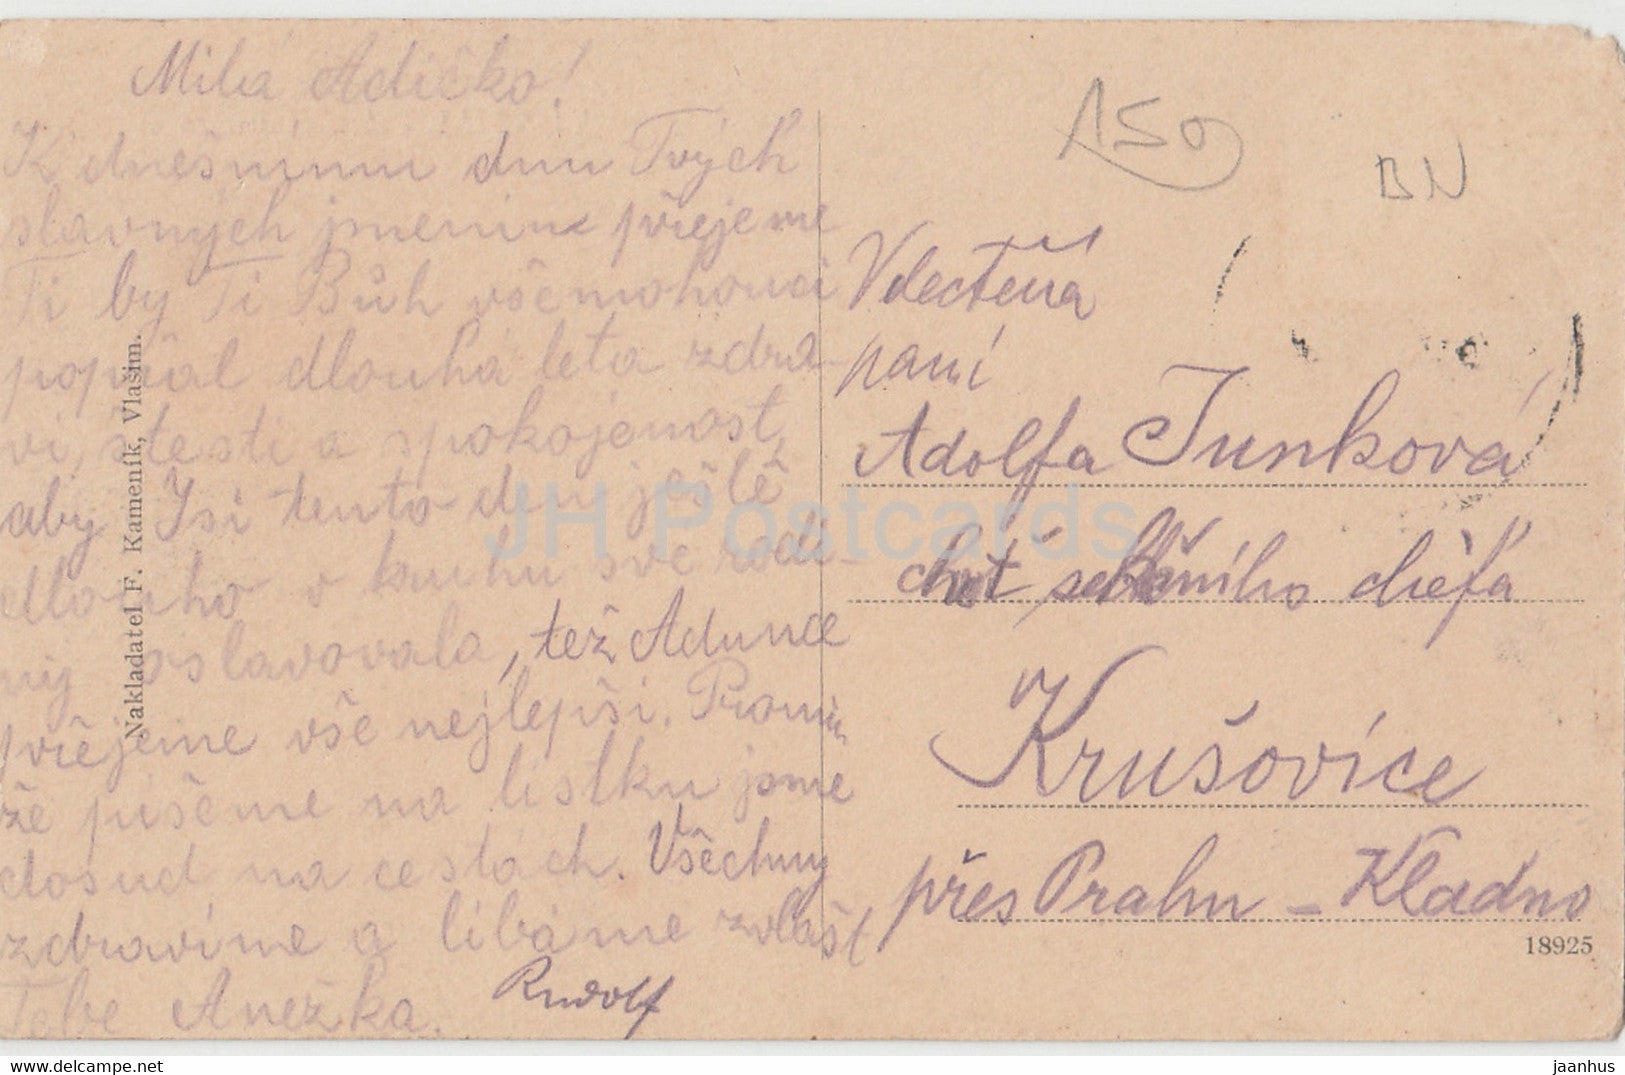 Milá Adičko!
K dnešnímu dnu Tvých
slavných jmenin přejeme
Ti by Ti Bůh všemohoucí
popřál dlouhá leta zdra-
ví, štesti a spokojenost,
aby Jsi tento den ještě
dlouho v kruhu své rodi-
ny oslavovala, též Adunce
přejeme vše nejlepší. Promiň
že píšeme na lístku jsme
dosud na cestách. Všechny
zdravíme a líbáme zvlášť
Tebe Anežka. Rudolf
Nakladatel F. Kameník, Vlašim.
150
BN
Velectěná
paní
Adolfa Junková
choť
Krušovice
přes Prahu - Kladno
18925
JH Postcards
https://www.delcampe.net
jaanhus